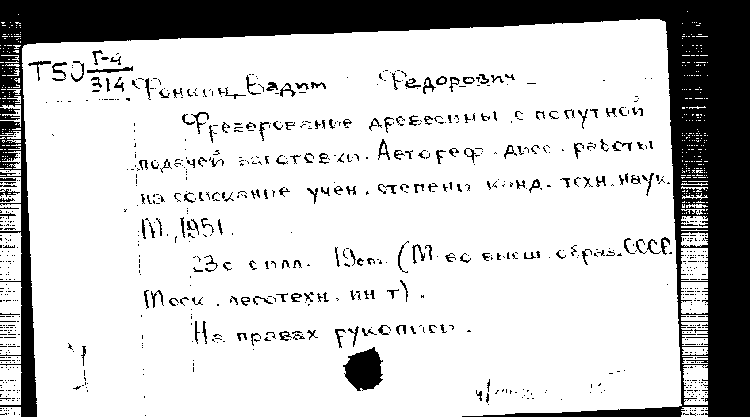 TSU Г-4
314
Фонкин, Вадим Федорович
Фрезерование древесины с попутной
подачей заготовки. Автореф. дисс. работы
на соискание учен. степени канд. техн. наук.
М., 1951.
23 с с илл. 19 см. (М-во высш. образ. СССР.
Моск. лесотехн. ин-т).
На правах рукописи.